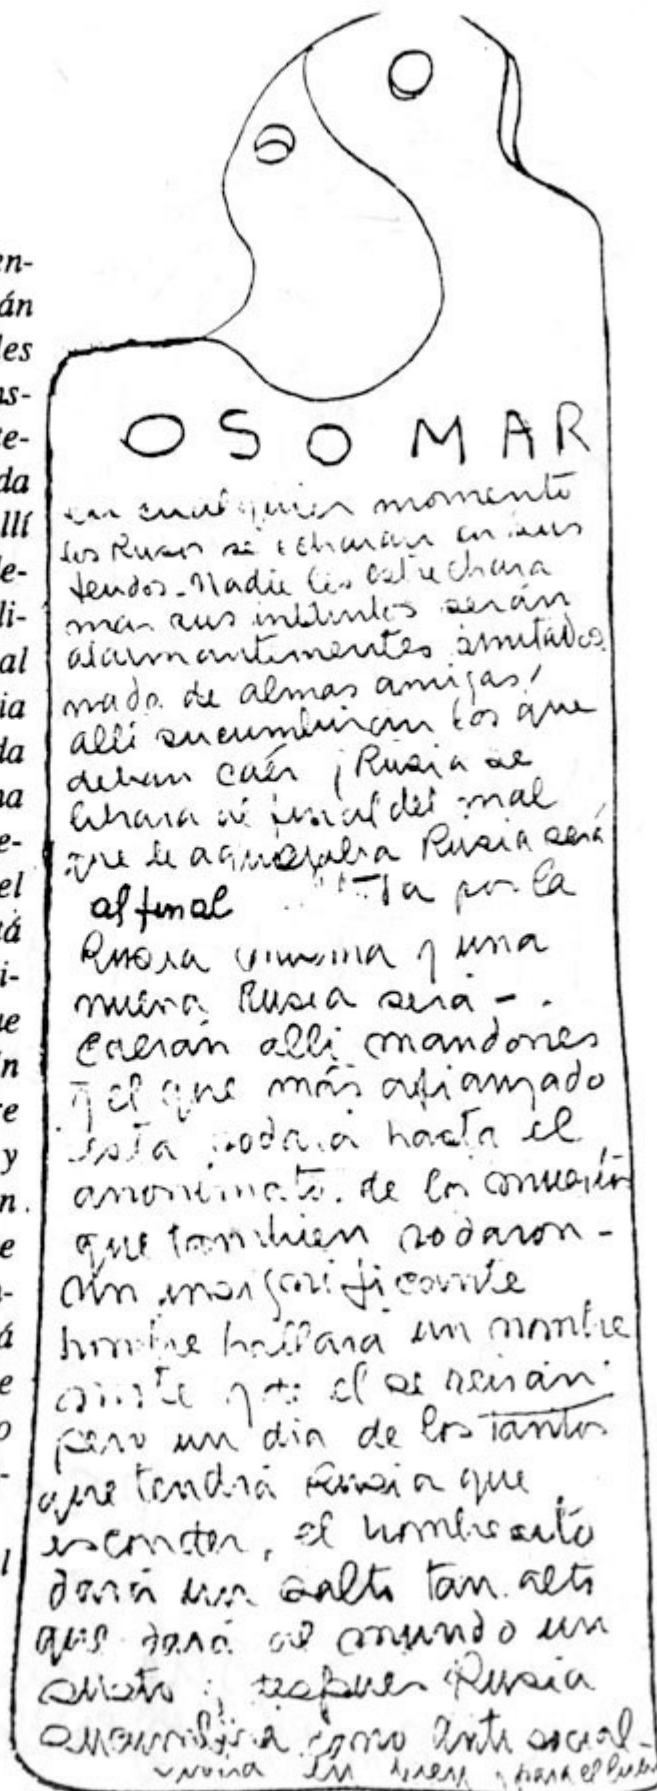 en-
án
les
ns-
te-
da
llí
de-
li-
al
ia
da
na
e-
el
tá
i-
ue
in
re
y
n.
e
n-
á
e
o
-
l
OSO MAR
en cualquier momento
los Rusos se echaran en sus
Nadie les estrechara
mas sus serán
nada de almas amigas!
alli sucumbiran los que
deban caér ¡Rusia se
librara al final del mal
que le aquejaba Rusia será
al final por la
Rusia misma y una
nueva Rusia será -
Caerán alli mandones
y el que más afianzado
esta rodará hasta el
anonimato. de los
que tambien rodaron -
un insignificante
hombre hallará un nombre
ante el se reirán
pero un dia de los tantos
que tendrá Rusia que
esconder, el hombresito
dará un salto tan alto
que dará al mundo un
susto; despues Rusia
sucumbirá como anti social -
en bien y para el bien